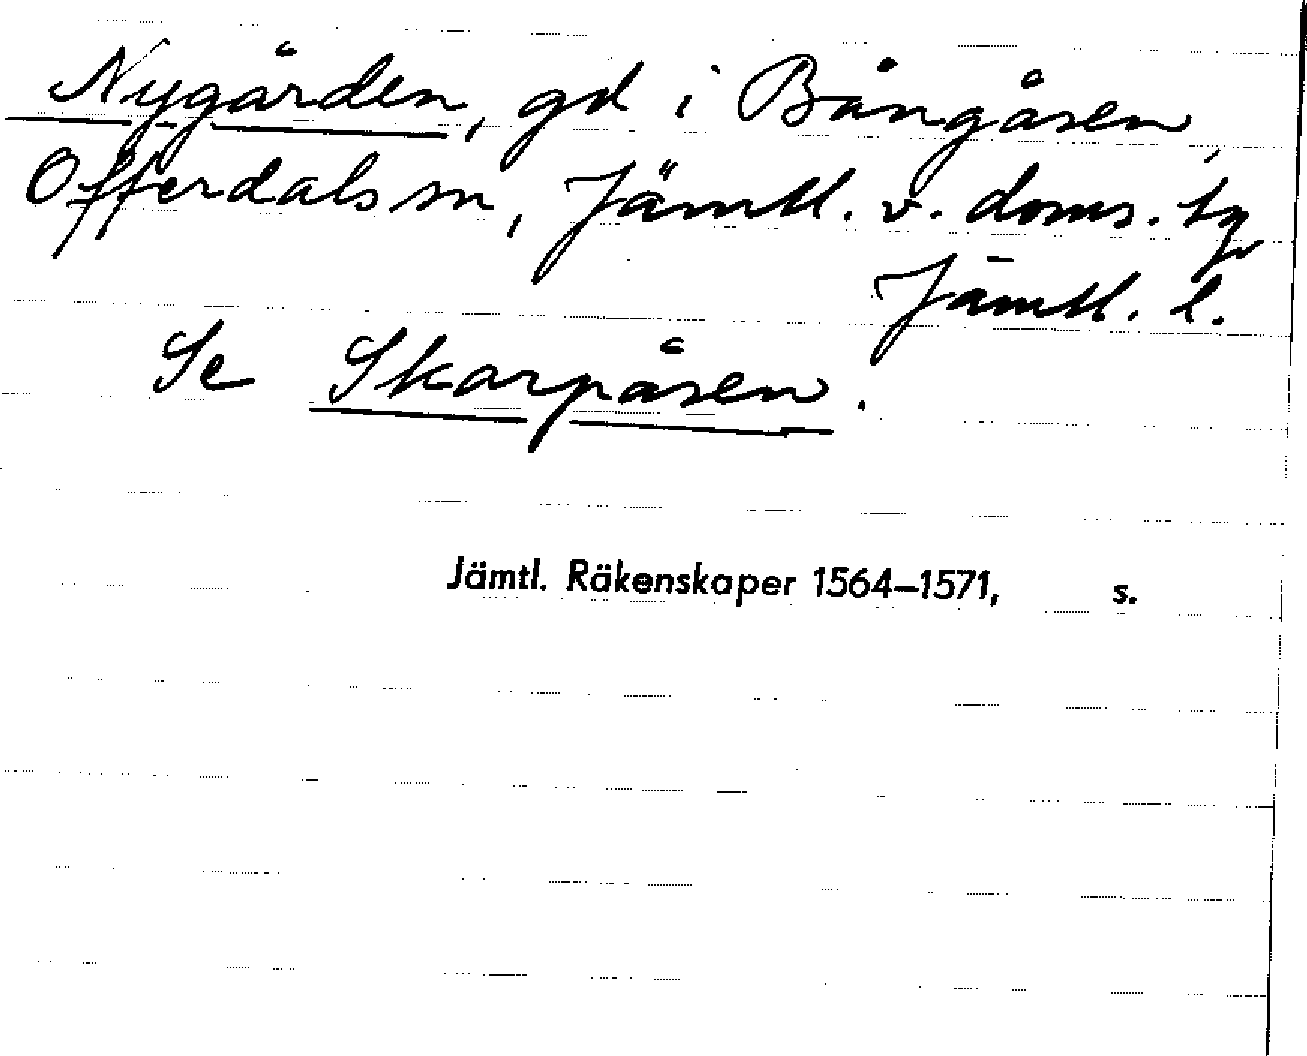 Nygården, gd i Bångåsen,
Offerdals sn, Jämtl. v. doms. tg
Jämtl. l.
Se Skarpåsen.
Jämtl. Räkenskaper 1564–1571, s.